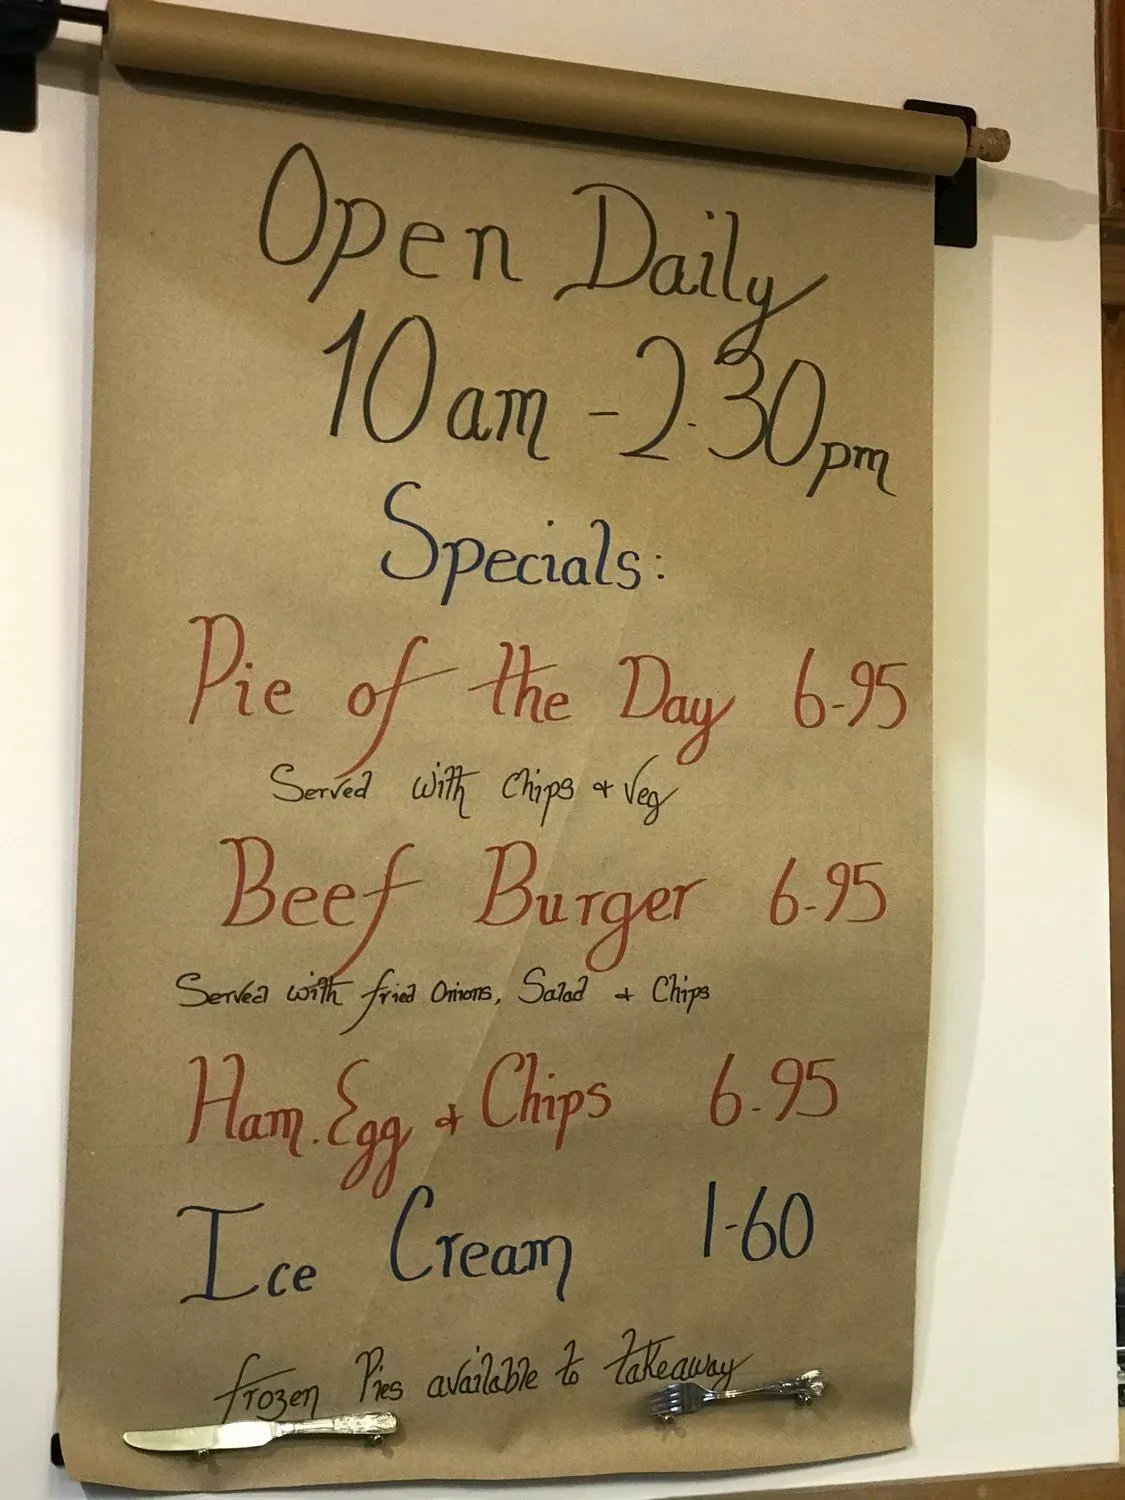 Open Daily
10am - 2.30pm
Specials:
Pie of the Day 6-95
Served with Chips + Veg
Beef Burger 6-95
Served with fried Onions, Salad + Chips
Ham. Egg + Chips 6-95
Ice Cream 1-60
frozen Pies available to takeaway